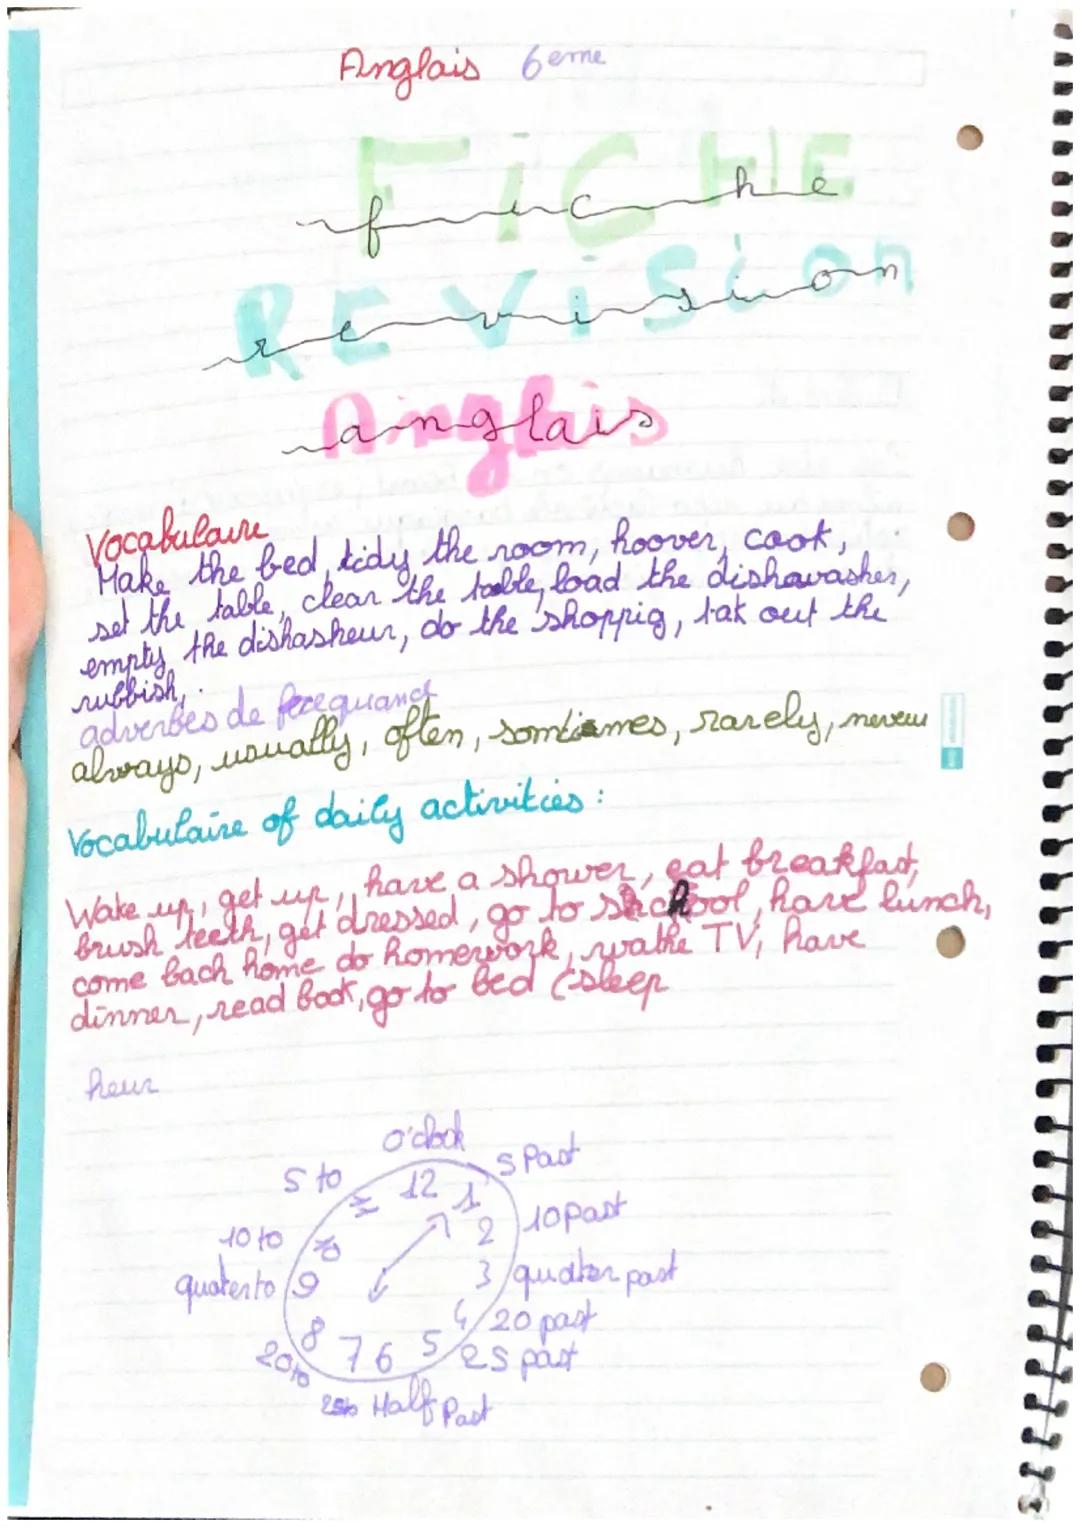 Anglais 6eme
FiCHE
fiche
REViSion
revision
Anglais
anglais
Vocabulaire
Make the bed, tidy the room, hoover, cook,
set the table, clear the table, load the dishawasher,
empty the dishasheur, do the shoppig, tak out the
rubbish,
adverbes de
always, usually, often, somtimes, rarely, neveur
Vocabulaire of daily activities :
Wake up, get up, have a shower, eat breakfast,
brush teeth, get dressed, go to school, have lunch,
come back home do homework, wathe TV, have
dinner, read book, go to bed (sleep
heur
o'clock
5 to 12 1 5 Past
10 to 2 10 past
quater to 9 3 quater past
8 7 6 5 4 20 past
20 to 25 past
25 to Half Past